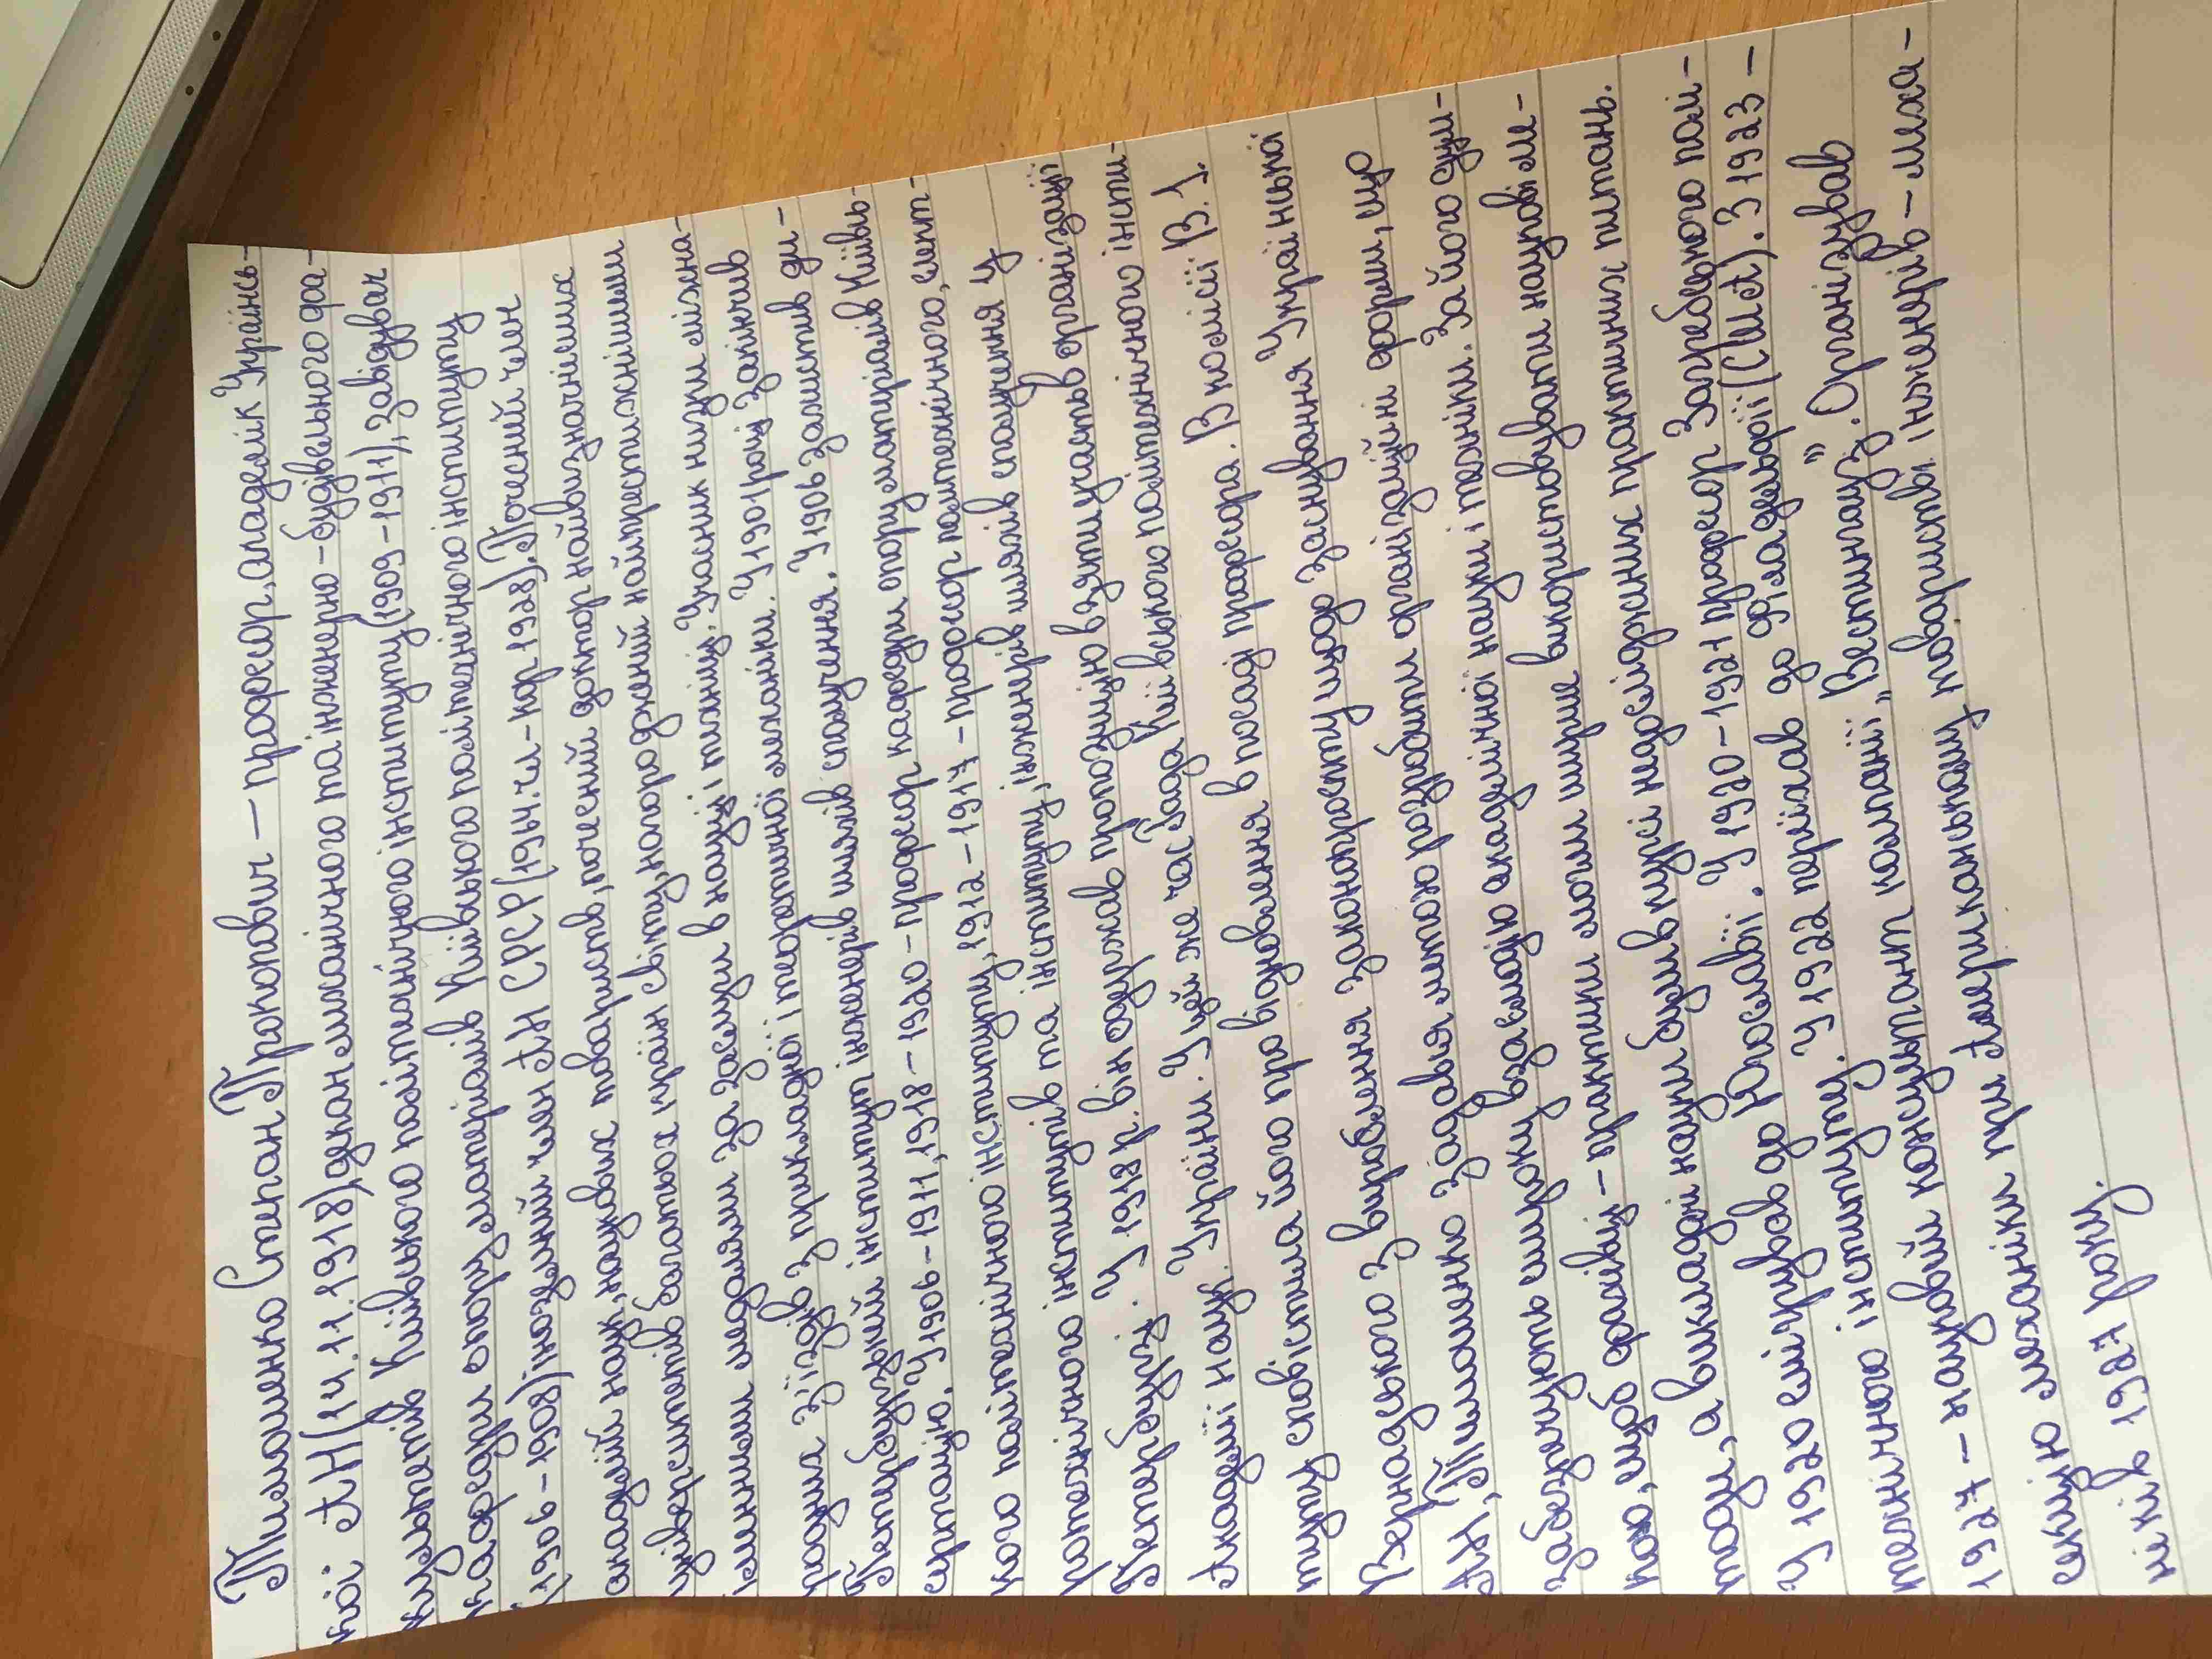 Тимошенко Степан Прокопович — професор, академік Українсь-
кої АН (14.11.1918), декан механічного та інженерно-будівельного фа-
культетів Київського політехнічного інституту (1909-1911), завідувач
кафедри опору матеріалів Київського політехнічного інституту
(1906-1908) іноземний член АН СРСР (1964.чл-кор 1928). Почесний член
академій наук, наукових товариств, почесний доктор найвизначніших
університетів багатьох країн світу, нагороджений найпрестижнішими
іменними медалями за заслуги в науці і техніці. Учасник низки міжна-
родних з'їздів з прикладної і теоретичної механіки. У 1901 році закінчив
Петербурзький інститут інженерів шляхів сполучення. У 1906 захистив ди-
сертацію. У 1906-1911, 1918-1920 - професор кафедри опору матеріалів Київсь-
кого політехнічного інституту, 1912-1917 - професор політехнічного, елект-
ротехнічного інститутів та інституту інженерів шляхів сполучення у
Петербурзі. У 1918 р. він одержав пропозицію взяти участь в організації
Академії наук України. У цей же час Рада Київського політехнічного інсти-
туту сповістила його про відновлення в посаді професора. В комісії В.І.
Вернадського з вироблення законопроекту щодо заснування Української
АН, Тимошенко задався метою розробити організаційні форми, що
забезпечують широку взаємодію академічної науки і техніки. За його дум-
кою, щоб фахівці - практики могли ширше використовувати наукові ме-
тоди, а викладачі науки були в курсі народжених практичних питань.
У 1920 емігрував до Югославії. У 1920-1921 професор Загребського полі-
технічного інституту. У 1922 переїхав до Філадельфії (США). З 1923 -
1927 - науковий консультант компанії „Вестингауз". Організував
секцію механіки при Американському товаристві інженерів - меха-
ніків 1927 року.